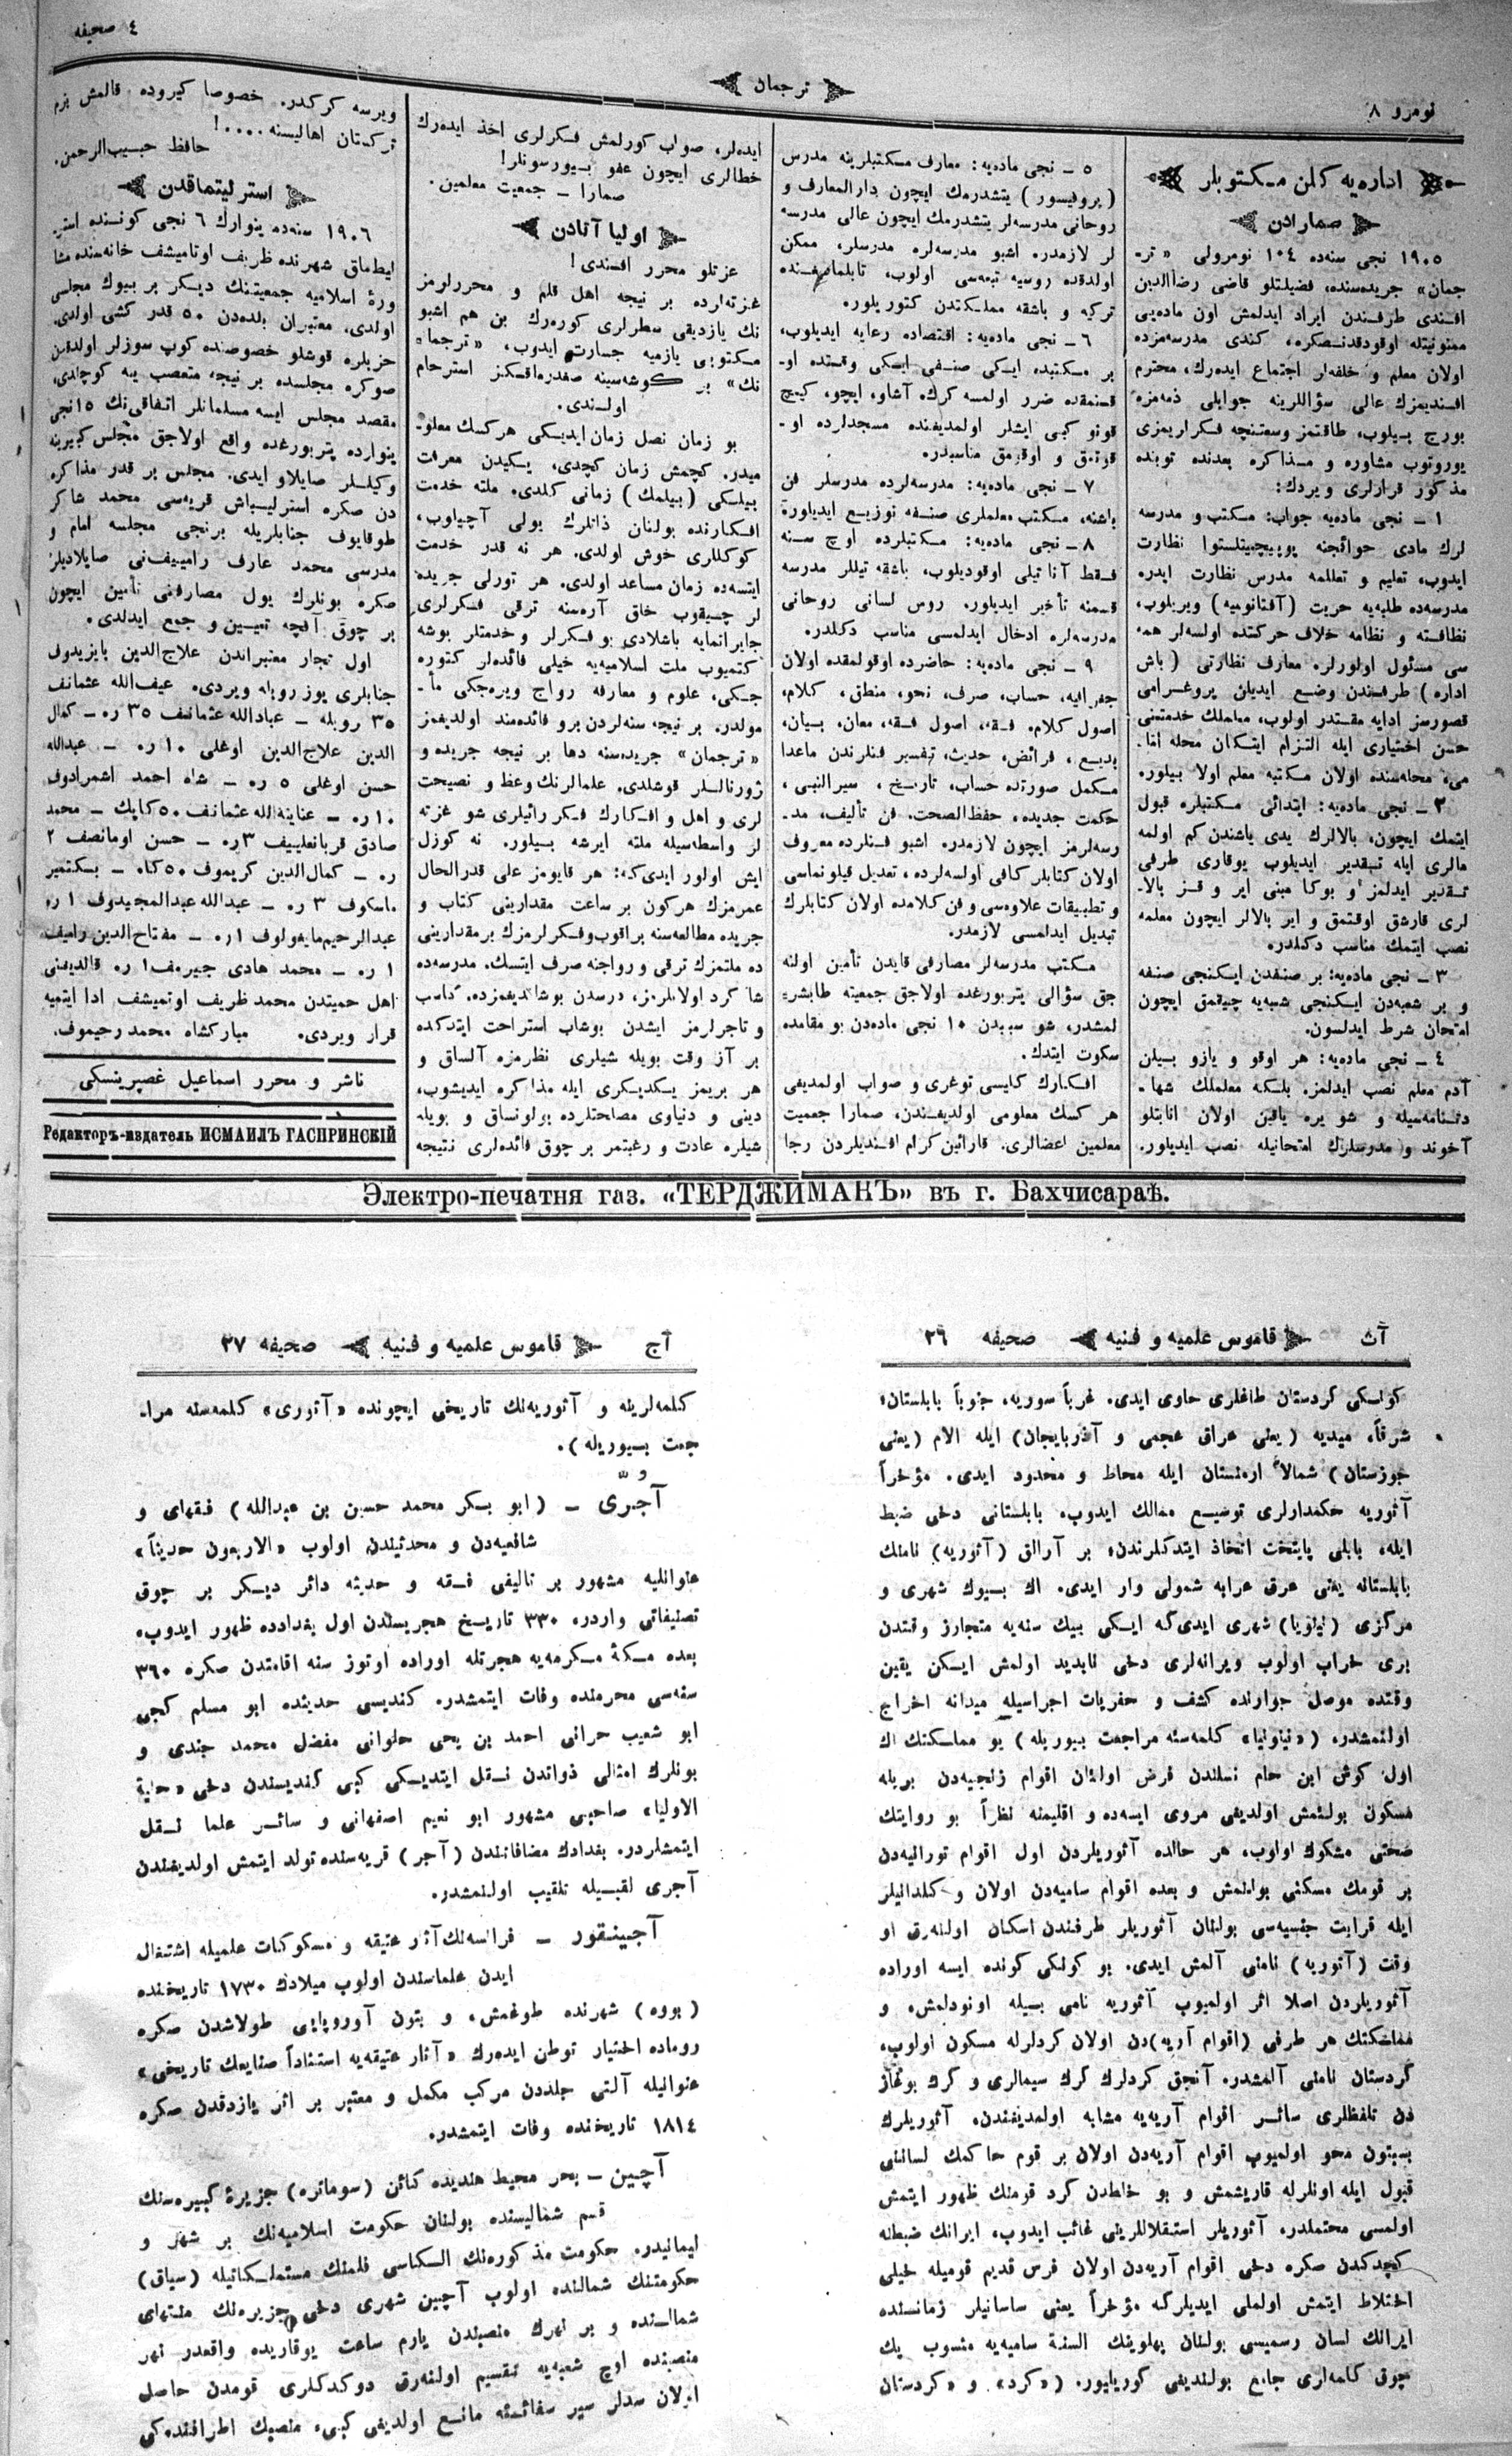 نومرو ٨
ترجمان
٤ صحيفه
اداره‌يه كلن مكتوبلر
صمارادن
١٩٠٥ نجى سنه‌ده ١٠٤ نومرولى «تر-
جمان» جريده‌سنده، فضيلتلو قاضى رضاالدين
افندى طرفندن ايراد ايدلمش اون ماده‌يى
ممنونيتله اوقودقدنصكره، كندى مدرسه‌مزده
اولان معلم و خلفه‌لر اجتماع ايده‌رك، محترم
افنديمزك عالى سؤاللرينه جوابلى ذمه‌مزه
بورج بيلوب، طاقتمز وسعتنچه فكرلريمزى
يوروتوب مشاوره و مذاكره بعدنده توبنده
مذكور قرارلرى ويردك:
١ - نجى ماده‌يه جواب: مكتب و مدرسه
لرك مادى حوائجنه پوپيچيتلستوا نظارت
ايدوب، تعليم و تعلمه مدرس نظارت ايدر.
مدرسه‌ده طلبه‌يه حريت (آفتانوميه) ويريلوب،
نظافته و نظامه خلاف حركتده اولسه‌لر همه
سى مسئول اولورلر. معارف نظارتى (باش
اداره) طرفندن وضع ايديلن پروغرامى
قصورسز ادايه مقتدر اولوب، معلملك خدمتنى
حسن اختيارى ايله التزام ايتكان محله اما-
مى، محله‌سنده اولان مكتبه معلم اولا بيلور.
٢ - نجى ماده‌يه: ابتدائى مكتبلره قبول
ايتمك ايچون، بالالرك يدى ياشندن كم اولمه
مالرى ايله تقدير ايديلوب يوقارى طرفى
تقدير ايدلمز و بوكا مبنى اير و قز بالا-
لرى قارشق اوقتمق و اير بالالر ايچون معلمه
نصب ايتمك مناسب دكلدر.
٣ - نجى ماده‌يه: بر صنفدن ايكنجى صنفه
و بر شعبه‌دن ايكنجى شعبه‌يه چيقمق ايچون
امتحان شرط ايدلسون.
٤ - نجى ماده‌يه: هر اوقو و يازو بيلن
آدم معلم نصب ايدلمز، بلكه معلملك شها-
دتنامه‌سيله و شو يره ياقين اولان اناتلو
آخوند و مدرسلرك امتحانيله نصب ايديلور.
٥ - نجى ماده‌يه: معارف مكتبلرينه مدرس
(پروفيسور) يتشدرمك ايچون دارالمعارف و
روحانى مدرسه‌لر يتشدرمك ايچون عالى مدرسه
لر لازمدر. اشبو مدرسه‌لره مدرسلر، ممكن
اولدقده روسيه تبعه‌سى اولوب، تابلماديغنده
تركيه و باشقه مملكتدن كتوريلور.
٦ - نجى ماده‌يه: اقتصاده رعايه ايديلوب،
بر مكتبده ايكى صنفى ايكى وقتده او-
قتمقده ضرر اولمسه كرك. آشاو، ايچو، كيچ
قونو كبى ايشلر اولمديغنده مسجدلرده او-
قوتمق و اوقومق مناسبدر.
٧ - نجى ماده‌يه: مدرسه‌لرده مدرسلر فن
باشنه، مكتب معلملرى صنفه توزيع ايديلور.
٨ - نجى ماده‌يه: مكتبلرده اوچ سنه
فقط آنا تيلى اوقوديلوب، باشقه تيللر مدرسه
قسمنه تأخير ايديلور. روس لسانى روحانى
مدرسه‌لره ادخال ايدلمسى مناسب دكلدر.
٩ - نجى ماده‌يه: حاضرده اوقولمقده اولان
جغرافيه، حساب، صرف، نحو، منطق، كلام،
اصول كلام، فقه، اصول فقه، معان، بيان،
بديع، فرائض، حديث، تفسير فنلرندن ماعدا
مكمل صورتده حساب، تاريخ، سيرالنبى،
حكمت جديده، حفظ‌الصحت، فن تأليف، مد-
رسه‌لرمز ايچون لازمدر. اشبو فنلرده معروف
اولان كتابلر كافى اولسه‌لرده، تعديل قيلونماسى
و تطبيقات علاوه‌سى و فن كلامده اولان كتابلرك
تبديل ايدلمسى لازمدر.
مكتب مدرسه‌لر مصارفى قايدن تأمين اولنه
جق سؤالى پتربورغده اولاجق جمعيته طابشر-
لمشدر، شو سببدن ١٠ نجى ماده‌دن بو مقامده
سكوت ايتدك.
افكارك كليسى توغرى و صواب اولمديغى
هر كسك معلومى اولديغندن، صمارا جمعيت
معلمين اعضالرى، قارائين كرام افنديلردن رجا
ايده‌لر، صواب كورلمش فكرلرى اخذ ايده‌رك
خطالرى ايچون عفو بيورسونلر!
صمارا - جمعيت معلمين.
اوليا آتادن
عزتلو محرر افندى!
غزته‌لرده بر نيجه اهل قلم و محررلرمز
نك يازديقى سطرلرى كوره‌رك بن هم اشبو
مكتوبى يازميه جسارت ايدوب، «ترجمان
نك» بر كوشه‌سينه صغدرماقكز استرحام
اولندى.
بو زمان نصل زمان ايديكى هركسك معلو-
ميدر. كچمش زمان كچدى، يكيدن معرفت
بيلكى (بيلمك) زمانى كلدى. ملته خدمت
افكارنده بولنان ذاتلرك يولى آچيلوب،
كوكللرى خوش اولدى. هر نه قدر خدمت
ايتسه‌ده زمان مساعد اولدى. هر تورلى جريده
لر چيقوب خلق آره‌سنه ترقى فكرلرى
جايراتمايه باشلادى. بو فكرلر و خدمتلر بوشه
كتميوب ملت اسلاميه‌يه خيلى فائده‌لر كتوره
جكى، علوم و معارفه رواج ويره‌جكى مأ-
مولدر. بر نيجه سنه‌لردن برو فائده‌مند اولديغمز
«ترجمان» جريده‌سنه دها بر نيجه جريده و
ژورناللر قوشلدى. علمالرنك وعظ و نصيحت
لرى و اهل و افكارك فكر رائيلرى شو غزته
لر واسطه‌سيله ملته ايرشه بيلور. نه كوزل
ايش اولور ايدى‌كه: هر قايومز على قدرالحال
عمرمزك هركون بر ساعت مقدارينى كتاب و
جريده مطالعه‌سنه براقوب و فكرلرمزك بر مقدارينى
ده ملتمزك ترقى و رواجنه صرف ايتسك. مدرسه‌ده
شاكرد اولانلرمز، درسدن بوشانديغمزده، كاسب
و تاجرلرمز ايشدن بوشاب استراحت ايتدكده
بر آز وقت بويله شيلرى نظرمزه آلساق و
هر بريمز يكديكرى ايله مذاكره ايديشوب،
دينى و دنياوى مصلحتلرده بولونساق و بويله
شيلره عادت و رغبتمر بر چوق فائده‌لرى نتيجه
ويرسه كركدر. خصوصا كيروده قالمش بزم
تركستان اهاليسنه....!
حافظ حبيب‌الرحمن.
استرليتماقدن
١٩٠٦ سنه‌ده ينوارك ٦ نجى كوننده استر-
ليطماق شهرنده ظريف اوتاميشف خانه‌سنده مشا
ورۀ اسلاميه جمعيتنك ديكر بر بيوك مجلسى
اولدى. معتبران بلده‌دن ٥٠ قدر كشى اولدى.
حزبلره قوشلو خصوصنده كوپ سوزلر اولدقدن
صوكره مجلسده بر نيجه متعصب يه كوچلدى.
مقصد مجلس ايسه مسلمانلر اتفاقى‌نك ١٥نجى
ينوارده پتربورغده واقع اولاجق مجلس كبيرينه
وكيللر صايلاو ايدى. مجلس بر قدر مذاكره
دن صكره استرليباش قريه‌سى محمد شاكر
طوقايوف جنابلريله برنجى مجلسه امام و
مدرسى محمد عارف راميیف‌نى صايلاديلر.
صكره بونلرك يول مصارفنى تأمين ايچون
بر چوق آقچه تعيين و جمع ايدلدى.
اول تجار معتبراندن علاج‌الدين بايزيدوف
جنابلرى يوز روبله ويردى. عيف‌الله عثمانف
٣٥ روبله - عبادالله عثمانف ٣٥ ر. - كمال
الدين علاج‌الدين اوغلى ١٠ ر. - عبدالله
حسن اوغلى ٥ ر. - شاه احمد اشمرادوف
١٠ ر. - عناية‌الله عثمانف ٥٠ كاپك - محمد
صادق قربانعلييف ٣ ر. - حسن اومانصف ٢
ر. - كمال‌الدين كريموف ٥٠ كا. - بكتمير
ماسكوف ٣ ر. - عبدالله عبدالمجيدوف ١ ر.
عبدالرحيم مايه‌ولوف ١ ر. - مفتاح‌الدين راميف
١ ر. - محمد هادى جيريف ١ ر. قالديغنى
اهل حميتدن محمد ظريف اوتميشف ادا ايتميه
قرار ويردى. مباركشاه محمد رحيموف.
ناشر و محرر اسماعيل غصپرينسكى
Редакторъ-издатель ИСМАИЛЪ ГАСПРИНСКІЙ
Электро-печатня газ. «ТЕРДЖИМАНЪ» въ г. Бахчисараѣ.
آث قاموس علميه و فنيه صحيفه ٢٦
كولسكى كردستان طاغلرى حاوى ايدى. غرباً سوريه، جنوباً بابلستان،
شرقاً، ميديه (يعنى عراق عجمى و آذربايجان) ايله الام (يعنى
خوزستان) شمالاً ارمنستان ايله محاط و محدود ايدى. مؤخراً
آثوريه حكمدارلرى توسيع ممالك ايدوب، بابلستانى دخى ضبط
ايله، بابلى پايتخت اتخاذ ايتدكلرندن، بر آرالق (آثوريه) نامنك
بابلستانه يعنى عرق عرابه شمولى وار ايدى. اك بيوك شهرى و
مركزى (نينويا) شهرى ايدى‌كه ايكى بيك سنه‌يه متجاوز وقتدن
برى خراب اولوب ويرانه‌لرى دخى نابديد اولمش ايكن يقين
وقتده موصل جوارنده كشف و حفريات اجراسيله ميدانه اخراج
اولنمشدر. («نينويا» كلمه‌سنه مراجعت بيوريله) بو مملكتنك اك
اول كوش ابن حام نسلندن فرض اولنان اقوام زنجيه‌دن بريله
مسكون بولنمش اولديغى مروى ايسه‌ده و اقليمنه نظراً بو روايتك
صحتى مشكوك اولوب، هر حالده آثوريلردن اول اقوام تورانيه‌دن
بر قومك مسكنى بولنمش و بعده اقوام ساميه‌دن اولان و كلدانيلر
ايله قرابت جنسيه‌سى بولنان آثوريلر طرفندن اسكان اولنه‌رق او
وقت (آثوريه) نامنى آلمش ايدى. بو كونكى كونده ايسه اوراده
آثوريلردن اصلا اثر اولميوب آثوريه نامى بيله اونودلمش، و
مملكتك هر طرفى (اقوام آريه)دن اولان كردلرله مسكون اولوب،
كردستان نامنى آلمشدر. آنجق كردلرك كرك سيمالرى و كرك بوغاز
دن تلفظلرى سائر اقوام آريه‌يه مشابه اولمديغندن، آثوريلرك
بسبتون محو اولميوب اقوام آريه‌دن اولان بر قوم حاكمك لساننى
قبول ايله اونلرله قاريشمش و بو خلطدن كرد قومنك ظهور ايتمش
اولمسى محتملدر. آثوريلر استقلاللرينى غائب ايدوب، ايرانك ضبطنه
كچدكدن صكره دخى اقوام آريه‌دن اولان فرس قديم قوميله خيلى
اختلاط ايتمش اولملى ايديلركه مؤخراً يعنى ساسانيلر زماننده
ايرانك لسان رسميسى بولنان پهلوينك السنۀ ساميه‌يه منسوب پك
چوق كلمه‌لرى جامع بولنديغى كوريليور. («كرد» و «كردستان
آج قاموس علميه و فنيه صحيفه ٢٧
كلمه‌لرينه و آثوريه‌نك تاريخى ايچونده «آثورى» كلمه‌سنه مرا-
جعت بيوريله).
آجُرّى - (ابو بكر محمد حسين بن عبدالله) فقهاى و
شافعيه‌دن و محدثيندن اولوب «الاربعون حديثاً»
عنوانليه مشهور بر تاليفى فقه و حديثه دائر ديكر بر چوق
تصنيفاتى واردر، ٣٣٠ تاريخ هجريسندن اول بغدادده ظهور ايدوب،
بعده مكۀ مكرمه‌يه هجرتله اوراده اوتوز سنه اقامتدن صكره ٣٦٠
سنه‌سى محرمنده وفات ايتمشدر. كنديسى حديثده ابو مسلم كجى
ابو شعيب حرانى احمد بن يحى حلوانى مفضل محمد جندى و
بونلرك امثالى ذواتدن نقل ايتديكى كبى كنديسندن دخى «حلية
الاوليا» صاحبى مشهور ابو نعيم اصفهانى و سائر علما نقل
ايتمشلردر. بغدادك مضافاتندن (آجر) قريه‌سنده تولد ايتمش اولديغندن
آجرى لقبيله تلقيب اولنمشدر.
آجينقور - فرانسه‌نك آثار عتيقه و مسكوكات علميله اشتغال
ايدن علماسندن اولوب ميلادك ١٧٣٠ تاريخنده
(بووه) شهرنده طوغمش، و بتون آوروپايى طولاشدن صكره
روماده اختيار توطن ايده‌رك «آثار عتيقه‌يه استناداً صنايعك تاريخى»
عنوانيله آلتى جلددن مركب مكمل و معتبر بر اثر يازدقدن صكره
١٨١٤ تاريخنده وفات ايتمشدر.
آچين - بحر محيط هنديده كائن (سوماتره) جزيرۀ كبيره‌سنك
قسم شماليسنده بولنان حكومت اسلاميه‌نك بر شهر و
ليمانيدر. حكومت مذكوره‌نك السكاسى فلمنك مستملكاتيله (سياق)
حكومتنك شمالنده اولوب آچين شهرى دخى جزيره‌نك منتهاى
شمالنده و بر نهرك منصبندن يارم ساعت يوقاريده واقعدر نهر
منصبنده اوچ شعبه‌يه تقسيم اولنه‌رق دوكدكلرى قومدن حاصل
اولان سدلر سير سفائنه مانع اولديغى كبى، منصبك اطرافنده‌كى